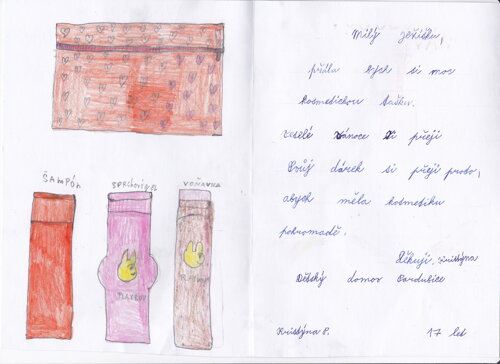 ŠAMPÓN
SPRCHOVÝ GEL
VOŇAVKA
PLAYBOY
PLAYBOY
Milý Ježíšku,
přála bych si moc
kosmetickou tašku.
Veselé vánoce Ti přeji
Svůj dárek si přeji proto,
abych měla kosmetiku
pohromadě.
Děkuji, Kristýna
Dětský domov Pardubice
Kristýna P. 17 let